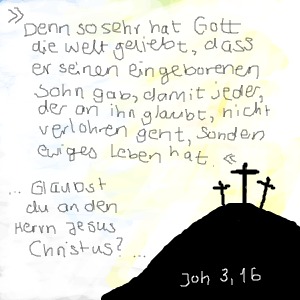 »
Denn so sehr hat Gott
die Welt geliebt, dass
er seinen eingeborenen
Sohn gab, damit jeder,
der an ihn glaubt, nicht
verlohren geht, sonden
ewiges Leben hat. «
... Glaubst
du an den
Herrn Jesus
Christus? ...
Joh 3,16